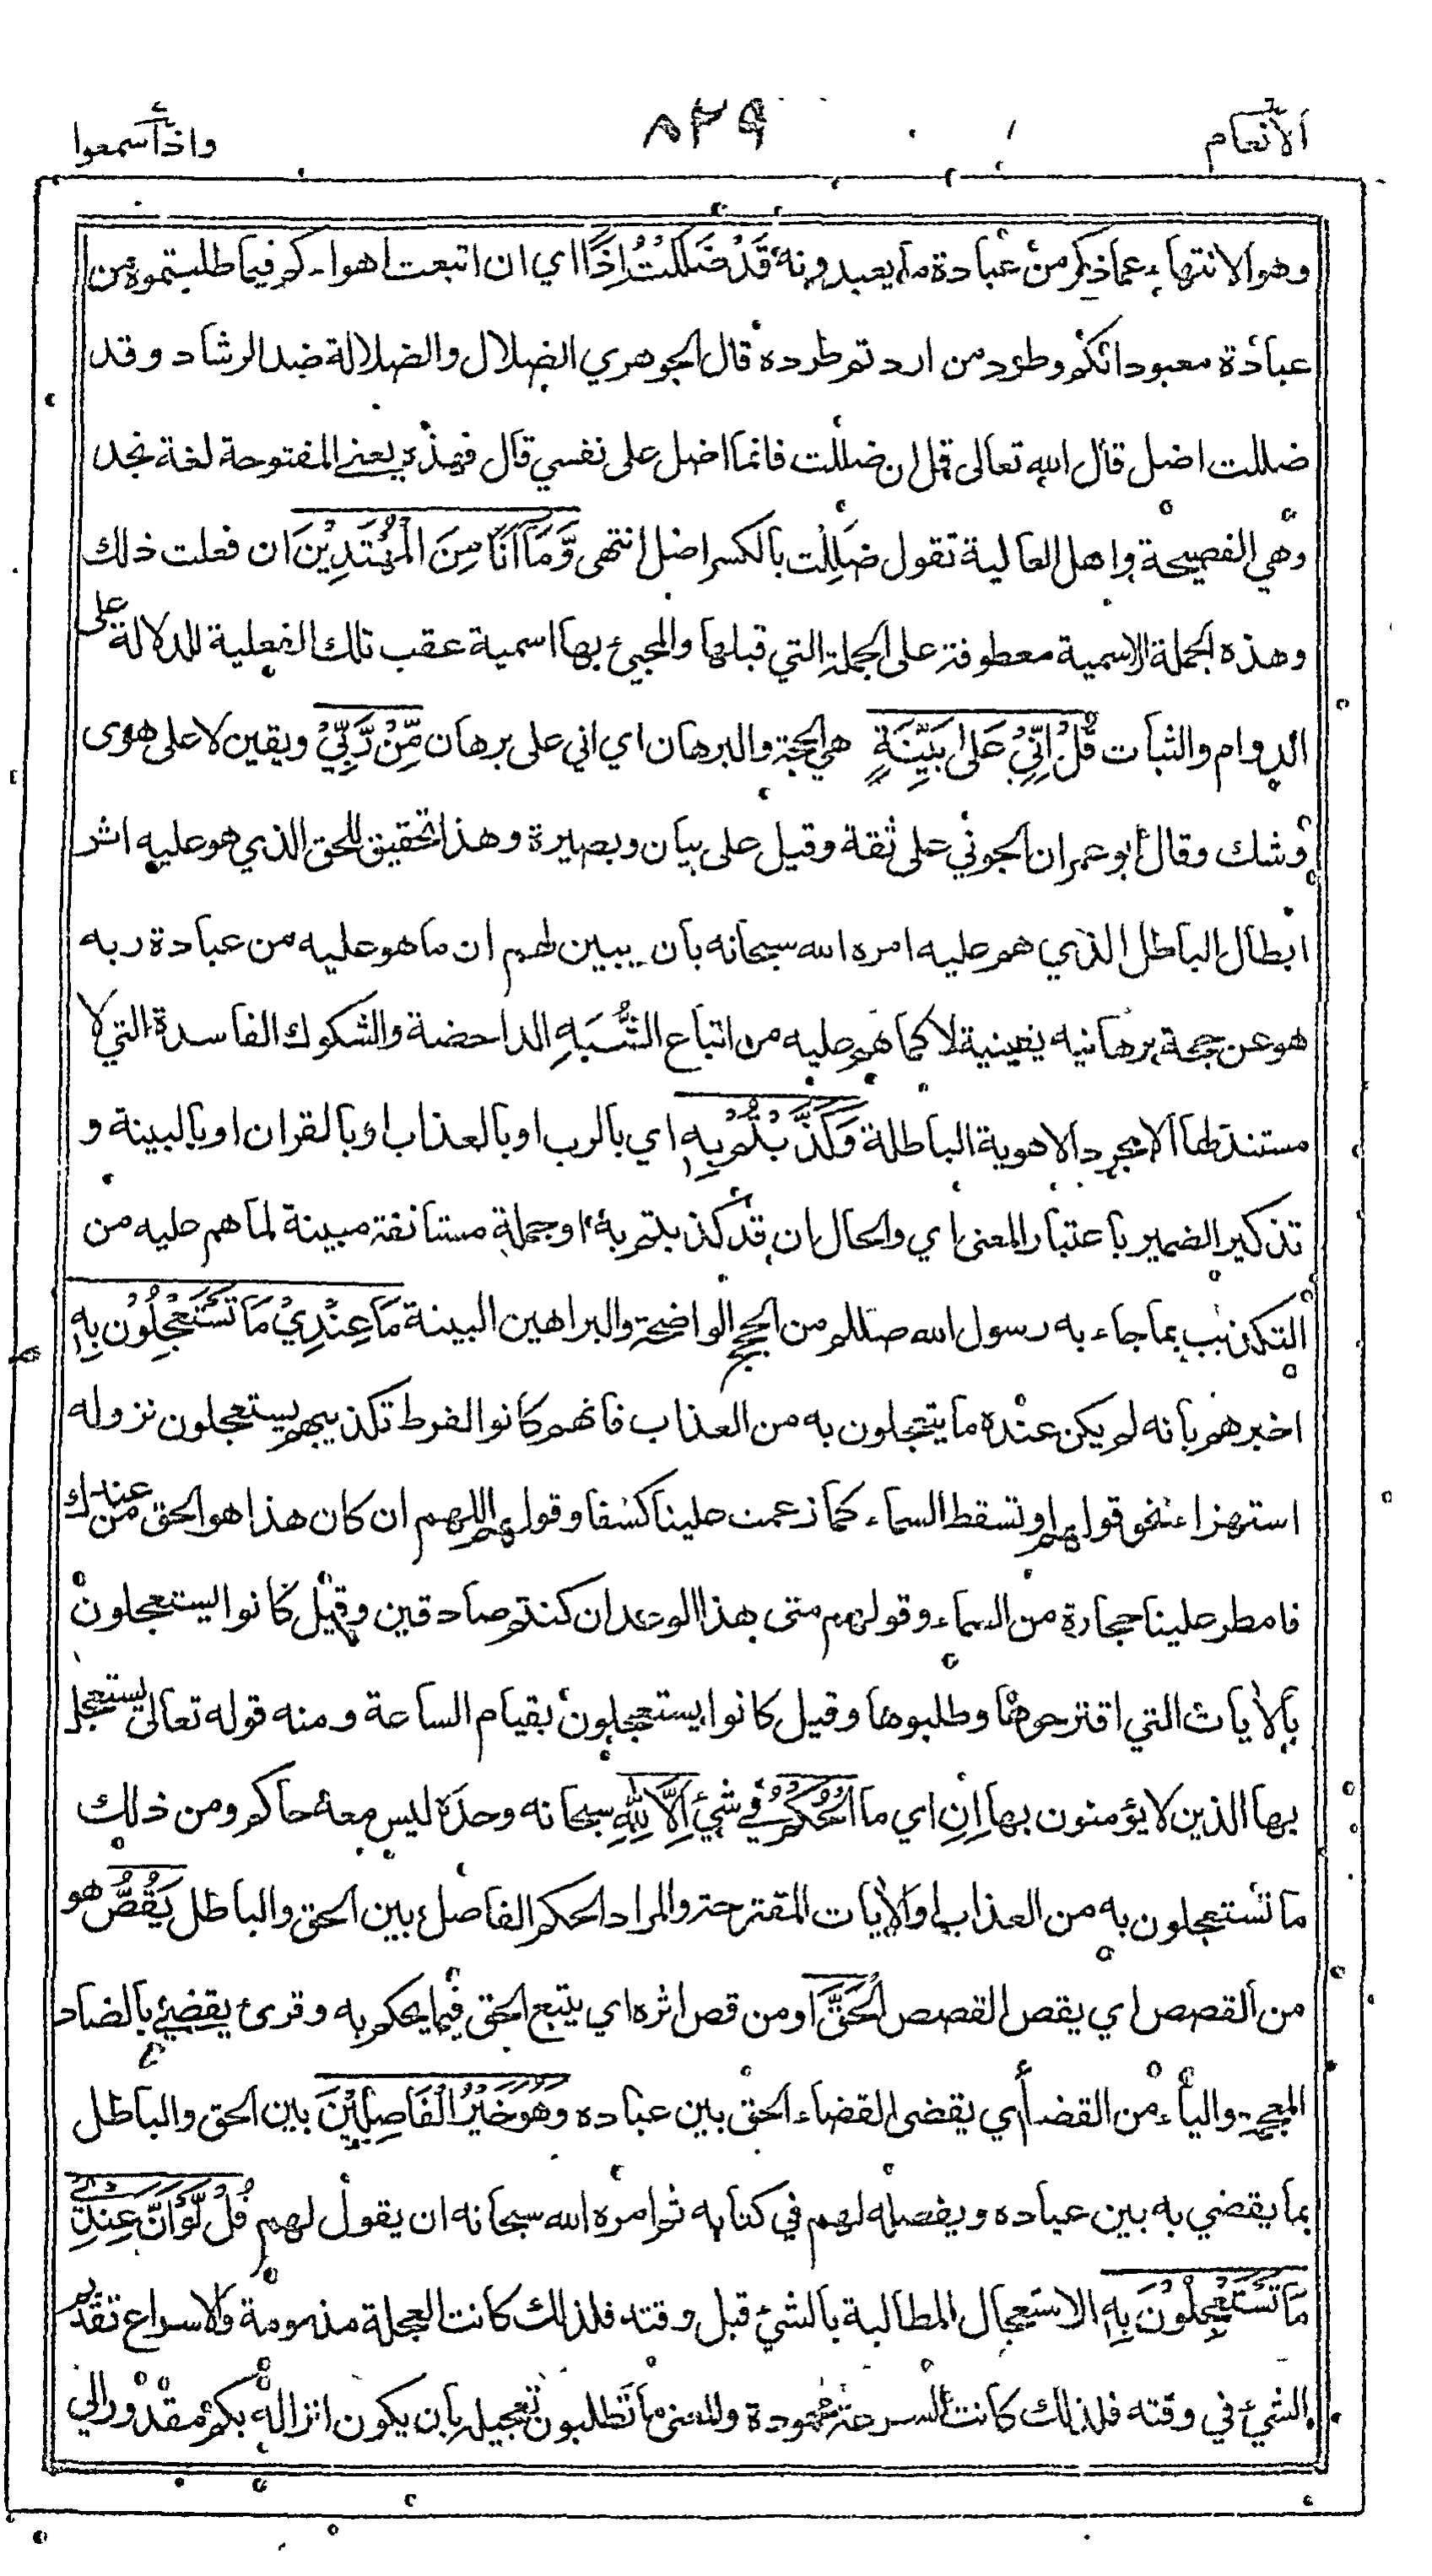 الأنعام ٨٢٩ واذا سمعوا
وهو الانتهاء عما ذكر من عبادة ما يعبدونه قَدْ ضَلَلْتُ اِذًا اي ان اتبعت اهواءكم فيما طلبتموه من
عبادة معبوداتكم وطرد من اردتم طرده قال الجوهري الضلال والضلالة ضد الرشاد وقد
ضللت اضل قال الله تعالى قل ان ضللت فانما اضل على نفسي قال فهذه يعني المفتوحة لغة نجد
وهي الفصيحة واهل العالية تقول ضَلِلْت بالكسر اضل انتهى وَّمَا اَنَا مِنَ الْمُهْتَدِيْنَ ان فعلت ذلك
وهذه الجملة الاسمية معطوفة على الجملة التي قبلها والمجيئ بها اسمية عقب تلك الفعلية للدلالة على
الدوام والثبات قُلْ اِنِّيْ عَلٰى بَيِّنَةٍ هي الحجة والبرهان اي اني على برهان مِّنْ رَّبِّيْ ويقين لا على هوى
وشك وقال ابو عمران الجوني على ثقة وقيل على بيان وبصيرة وهذا تحقيق للحق الذي هو عليه اثر
ابطال الباطل الذي هم عليه امره الله سبحانه بان يبين لهم ان ما هو عليه من عبادة ربه
هو عن حجة برهانيه يقينية لا كما هم عليه من اتباع الشُّبَهِ الداحضة والشكوك الفاسدة التي لا
مستند لها الا مجرد الاهوية الباطلة وَكَذَّبْتُمْ بِهٖ اي بالرب او بالعذاب او بالقران او بالبينة و
تذكير الضمير باعتبار المعنى اي والحال ان قد كذبتم به او جملة مستانفة مبينة لما هم عليه من
التكذيب بما جاء به رسول الله صللم من الحجج الواضحة والبراهين البينة مَا عِنْدِيْ مَا تَسْتَعْجِلُوْنَ بِهٖ
اخبرهم بانه لم يكن عنده ما يتعجلون به من العذاب فانهم كانوا لفرط تكذيبهم يستعجلون نزوله
استهزاء نحو قولهم او تسقط السماء كما زعمت علينا كسفا وقولهم اللهم ان كان هذا هو الحق من عندك
فامطر علينا حجارة من السماء وقولهم متى هذا الوعد ان كنتم صادقين وقيل كانوا يستعجلون
بالأيات التي اقترحوها وطلبوها وقيل كانوا يستعجلون بقيام الساعة ومنه قوله تعالى يستعجل
بها الذين لا يؤمنون بها اِنِ اي ما الْحُكْمُ في شيء اِلَّا لِلّٰهِ سبحانه وحده ليس معه حاكم ومن ذلك
ما تستعجلون به من العذاب او الأيات المقترحة والمراد الحكم الفاصل بين الحق والباطل يَقُصُّ هو
من القصص اي يقص القصص الْحَقَّ او من قص اثره اي يتبع الحق فيما يحكم به وقرئ يقضي بالضاد
المعجمة والياء من القضاء اي يقضى القضاء الحق بين عباده وَهُوَ خَيْرُ الْفَاصِلِيْنَ بين الحق والباطل
بما يقضي به بين عباده ويفصله لهم في كتابه ثم امره الله سبحانه ان يقول لهم قُلْ لَّوْ اَنَّ عِنْدِيْ
مَا تَسْتَعْجِلُوْنَ بِهٖ الاستعجال المطالبة بالشيء قبل وقته فلذلك كانت العجلة مذمومة والاسراع تقديم
الشيء في وقته فلذلك كانت السرعة محمودة والمعنى ما تطلبون تعجيله بان يكون انزاله بكم مقدورا لي